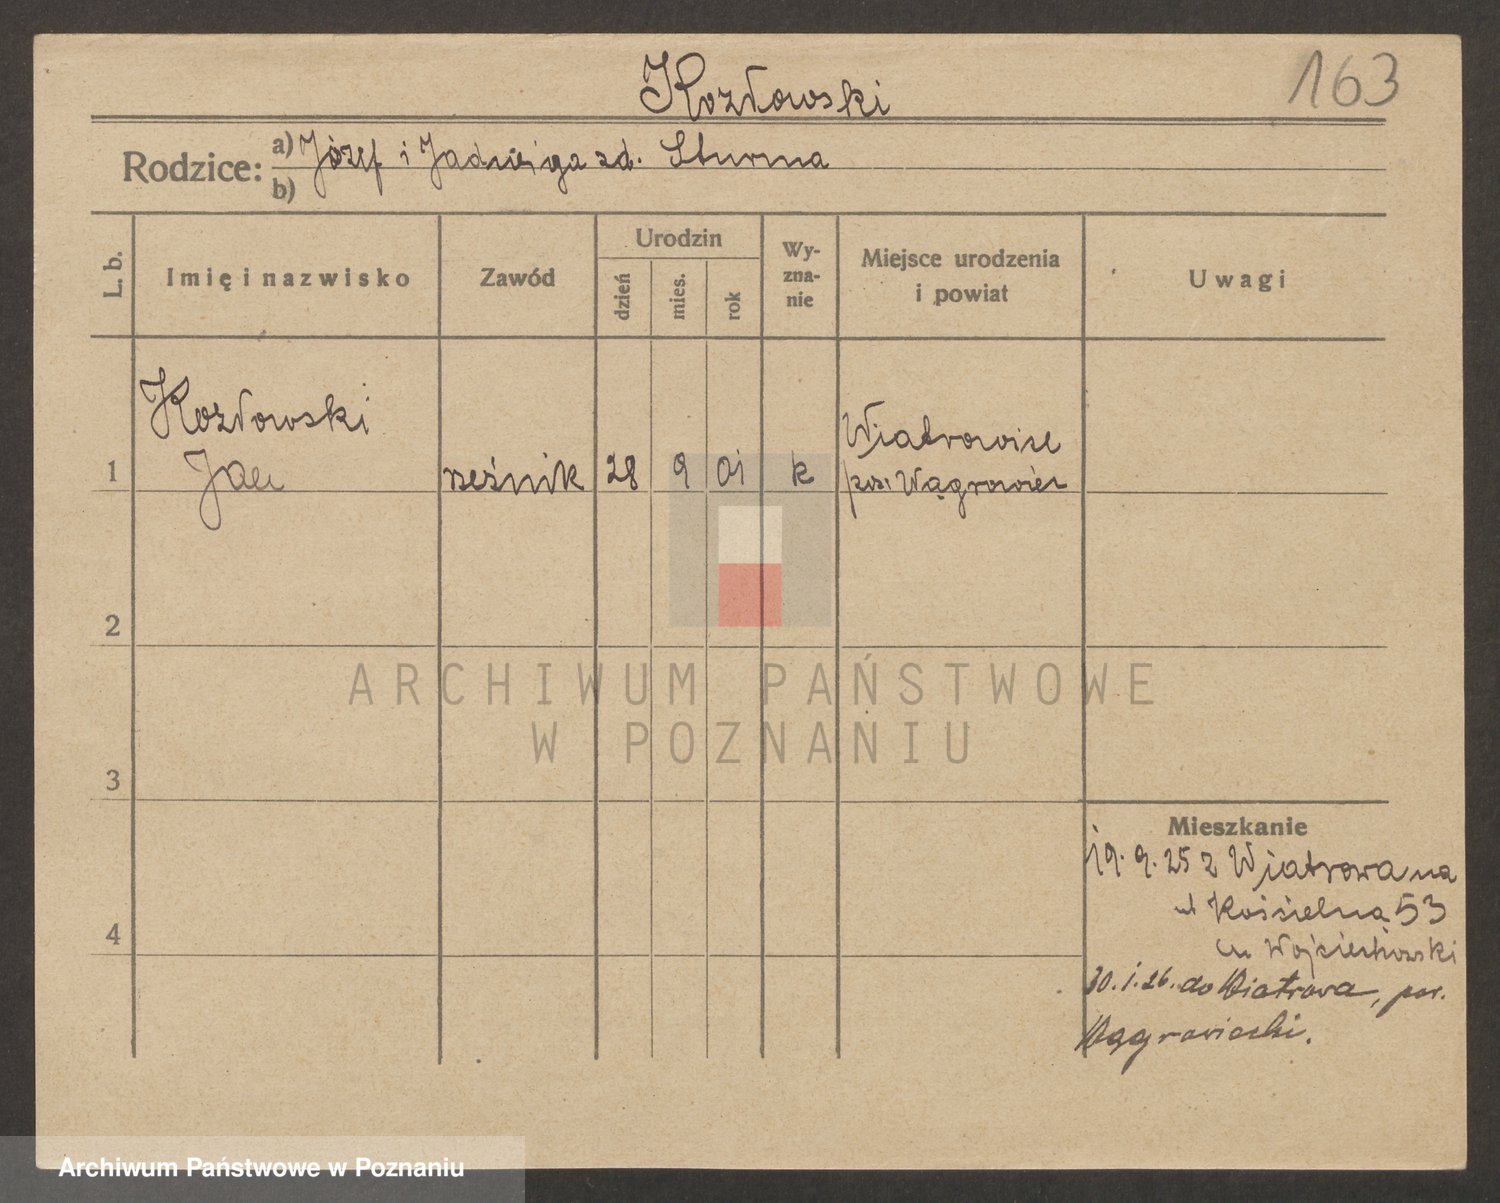 Kozłowski
163
Rodzice:
a) Józef i Jadwiga zd. Sturma
b)
L. b.
Imię i nazwisko
Zawód
Urodzin
dzień
mies.
rok
Wy-
zna-
nie
Miejsce urodzenia
i powiat
Uwagi
Kozłowski
1 Jan rzeźnik 28 9 01 k
Wiatrowice
pow. Wągrowiec
2
3
4
Mieszkanie
19. 9. 25 z Wiatrowa na
ul Kościelną 53
Wojciechowski
30. 1. 26. do Wiatrowa, pow.
Wągrowiecki.
ARCHIWUM PAŃSTWOWE
W POZNANIU
Archiwum Państwowe w Poznaniu